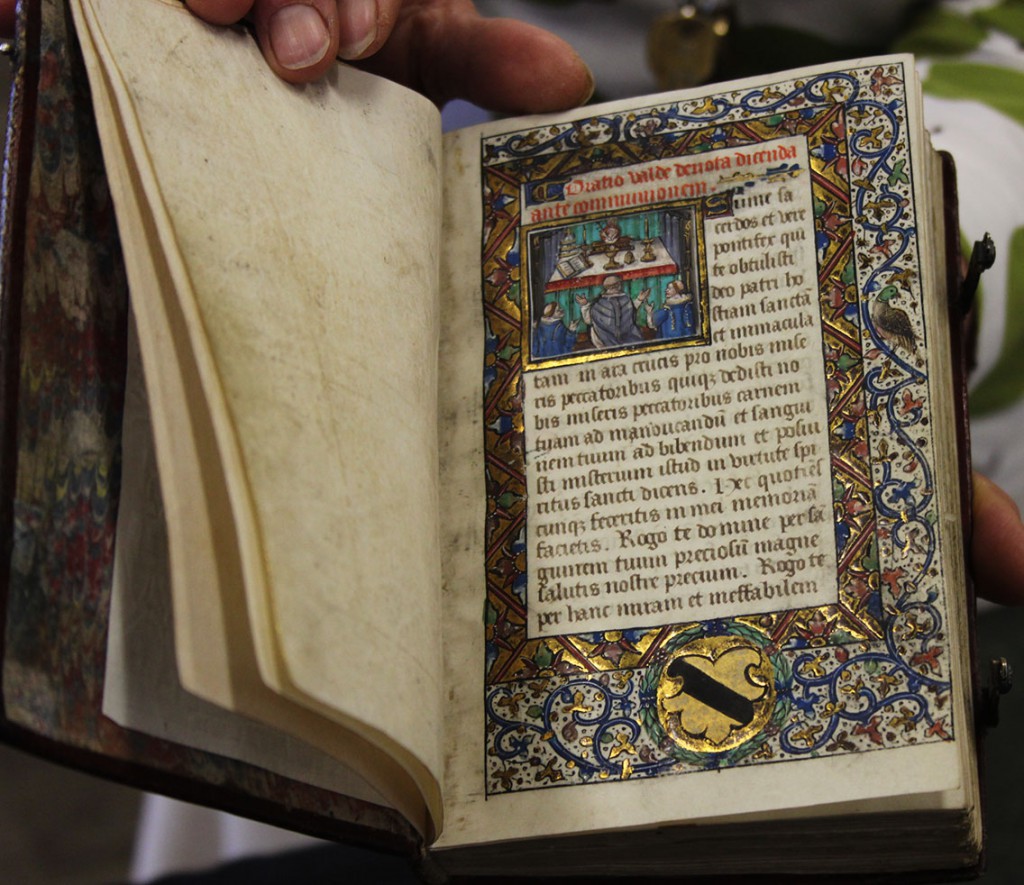 Oratio valde devota dicenda
ante communionem.
Sume sa
cerdos et vere
pontifex qui
te obtulisti
deo patri ho
stiam sanctā
et immacula
tam in ara crucis pro nobis mise
ris peccatoribus quiqꝫ dedisti no
bis miseris peccatoribus carnem
tuam ad manducandū et sangui
nem tuum ad bibendum et posui
sti misterium istud in virtute spi
ritus sancti dicens. Hec quotiēs
cunqꝫ feceritis in mei memoriā
facietis. Rogo te domine per sā
guinem tuum preciosū magne
salutis nostre precium. Rogo te
per hanc miram et ineffabilem